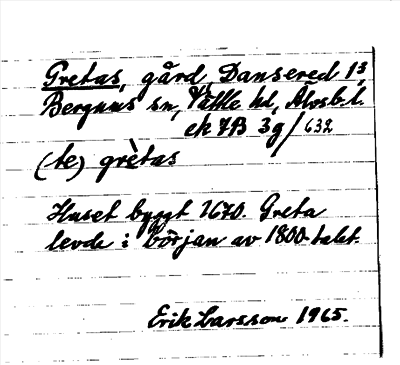 Gretas, gård, Dansered 1³,
Bergums sn, Vättle hd, Älvsb. l.
ek 7B 3g/632
(te) grètas
Huset byggt 1670. Greta
levde i början av 1800-talet.
Erik Larsson 1965.